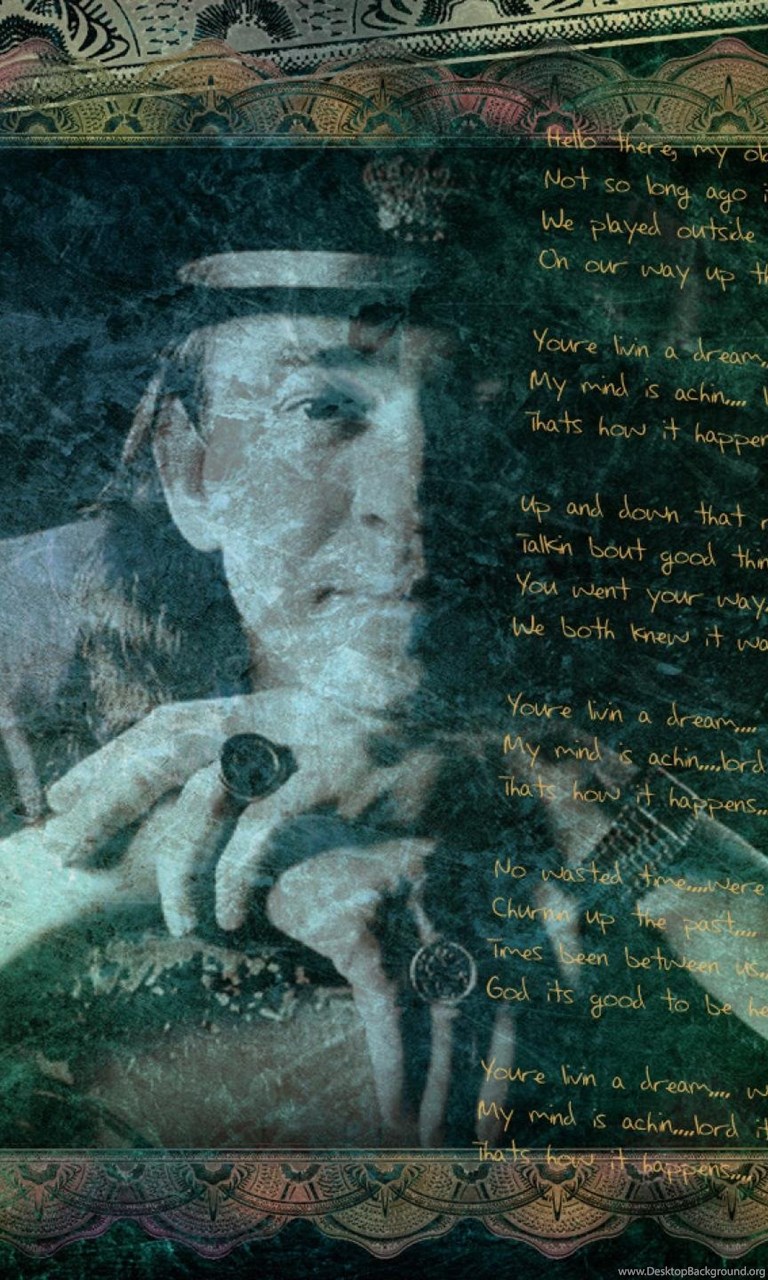 Hello there, my old
Not so long ago i
We played outside
On our way up th
Youre livin a dream,,,
My mind is achin,,,,
Thats how it happen
Up and down that r
Talkin bout good thin
You went your way,
We both knew it wa
Youre livin a dream,,,,
My mind is achin,,,,lord
Thats how it happens,,,
No wasted time,,,,were
Churnin up the past,,,,
Times been between us,,,
God its good to be he
Youre livin a dream,,,, w
My mind is achin,,,,lord it
Thats how it happens,,,,
www.DesktopBackground.org